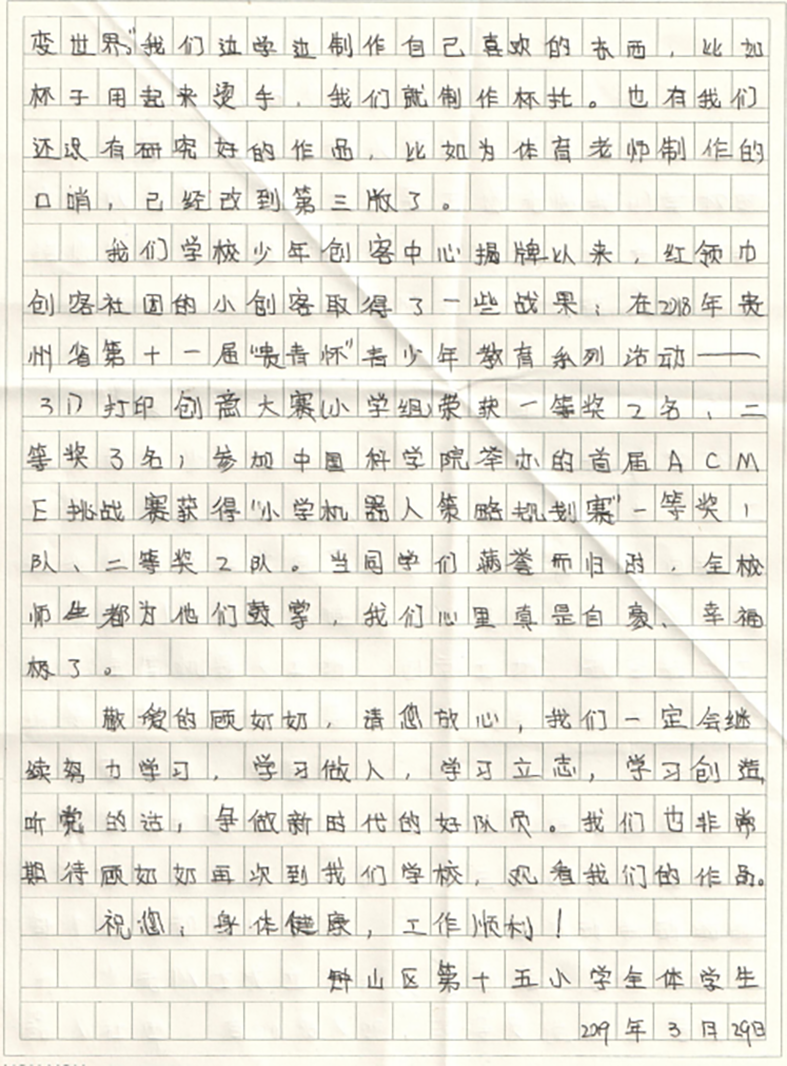 变世界”我们边学边制作自己喜欢的东西，比如
杯子用起来烫手，我们就制作杯托。也有我们
还没有研究好的作品，比如为体育老师制作的
口哨，已经改到第三版了。
我们学校少年创客中心揭牌以来，红领巾
创客社团的小创客取得了一些战果：在2018年贵
州省第十一届“贵青杯”青少年教育系列活动——
3D打印创意大赛(小学组)荣获一等奖2名、二
等奖3名；参加中国科学院举办的首届ACM
E挑战赛获得“小学机器人策略规划赛”一等奖1
队、二等奖2队。当同学们满誉而归时，全校
师生都为他们鼓掌，我们心里真是自豪、幸福
极了。
敬爱的顾奶奶，请您放心，我们一定会继
续努力学习，学习做人，学习立志，学习创造，
听党的话，争做新时代的好队员。我们也非常
期待顾奶奶再次到我们学校，观看我们的作品。
祝您：身体健康，工作顺利！
钟山区第十五小学全体学生
2019年3月29日